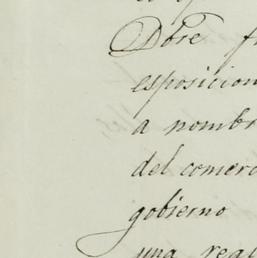 Dbre f
esposicion
a nombr
del comerc
gobierno
una real